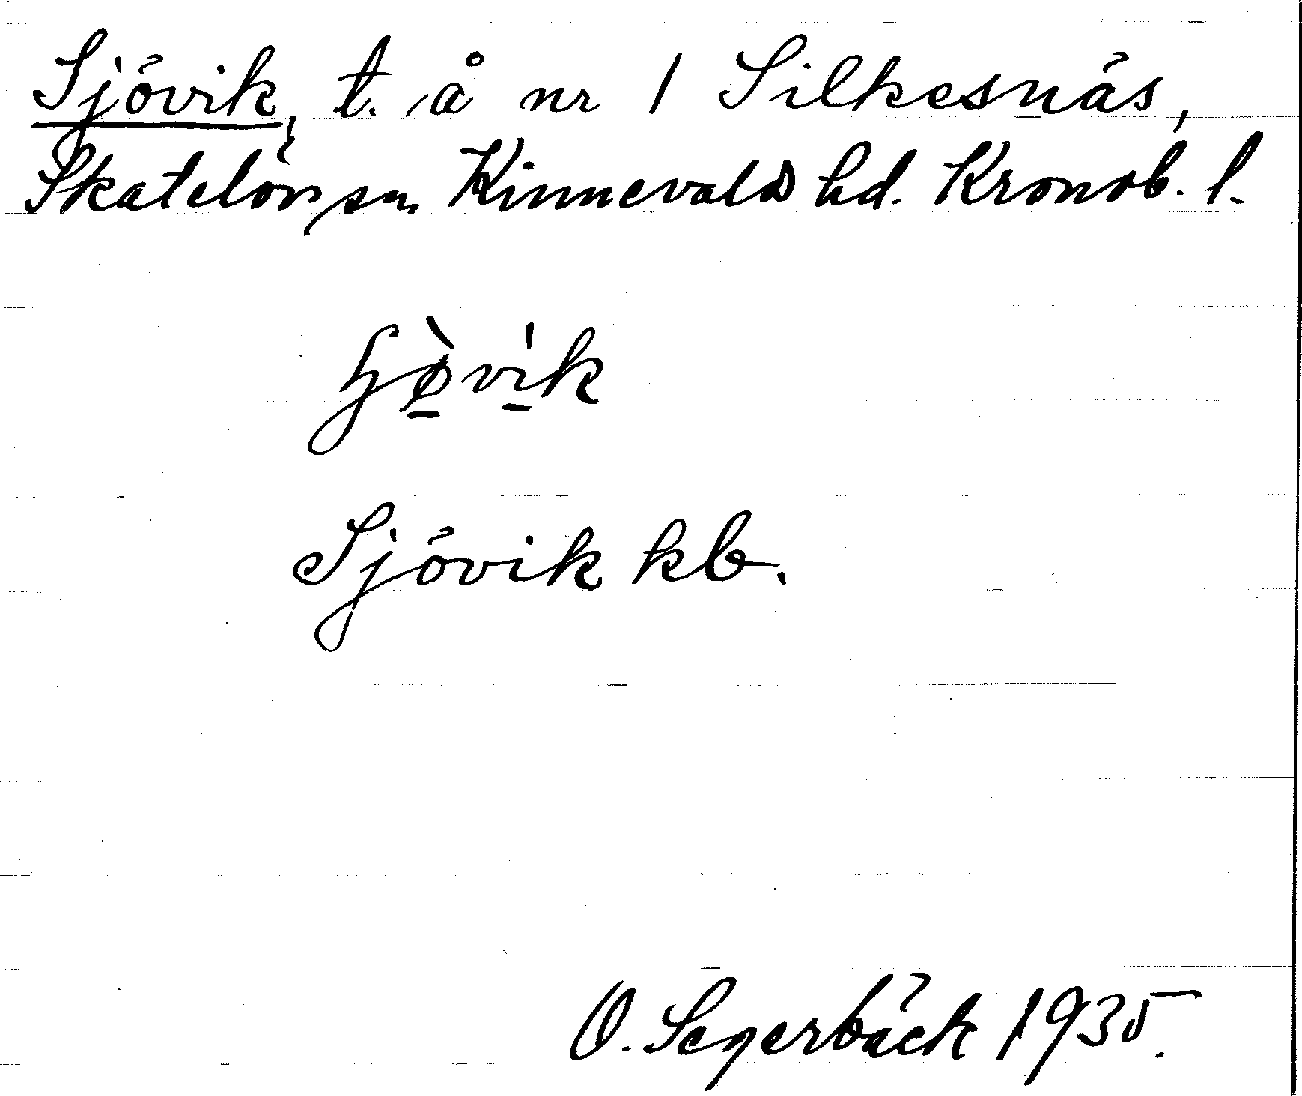 Sjövik, t. å nr 1 Silkesnäs,
Skatelöv sn Kinnevalds hd. Kronob. l.
Sjövik kb.
O. Segerbäck 1935.